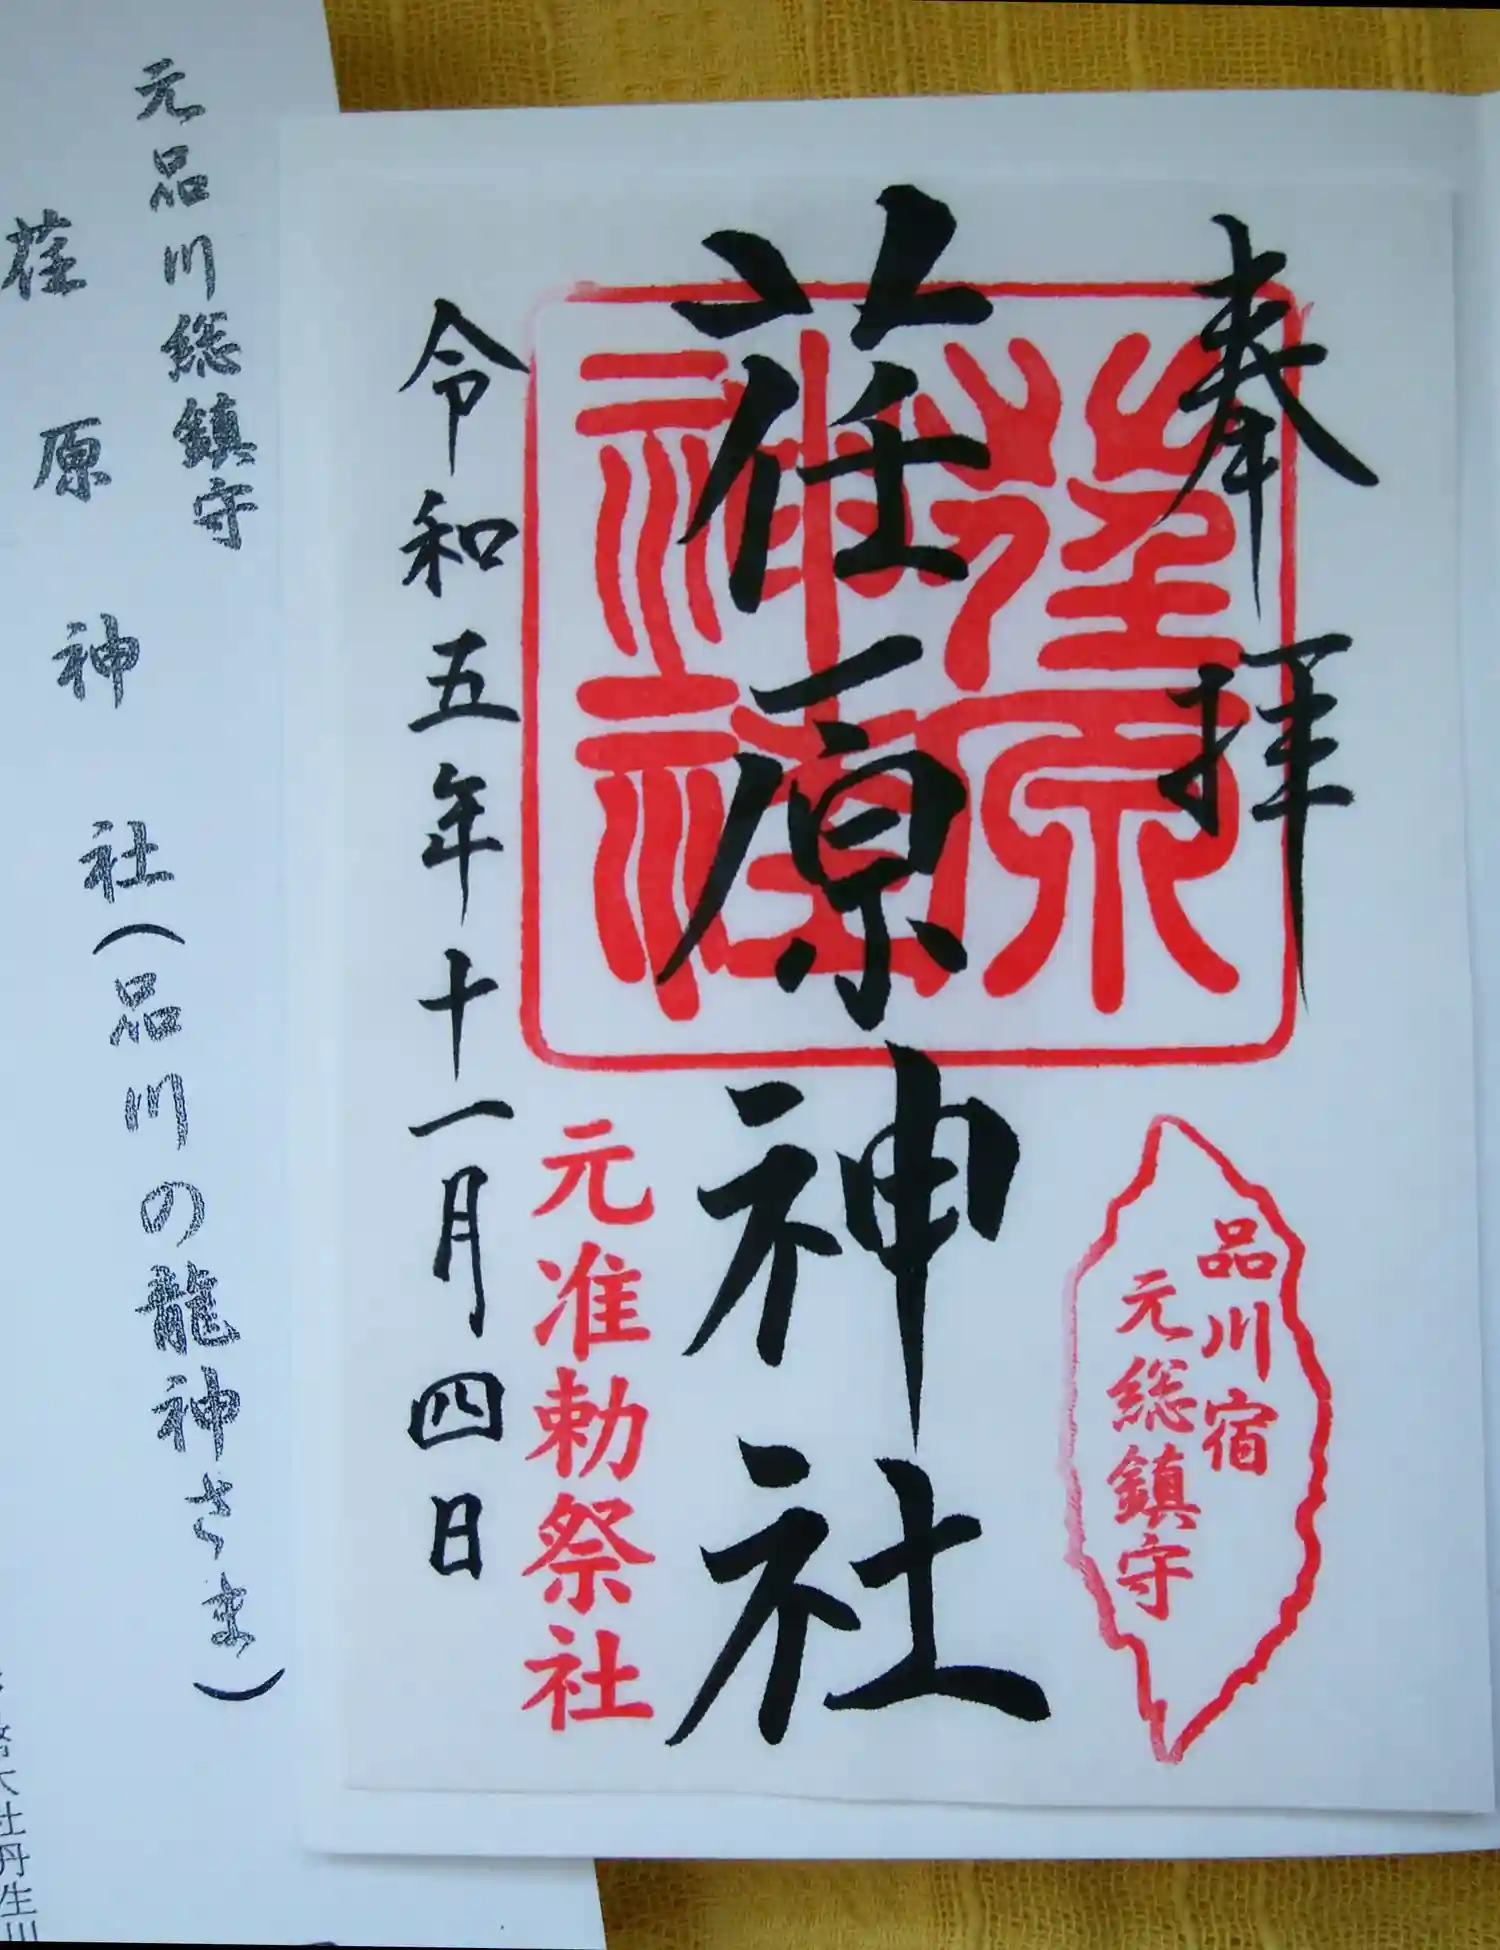 奉拝
荏原神社
令和五年十一月四日
荏原神社
品川宿
元総鎮守
元准勅祭社
元品川総鎮守
荏原神社(品川の龍神さま)
大社丹生川